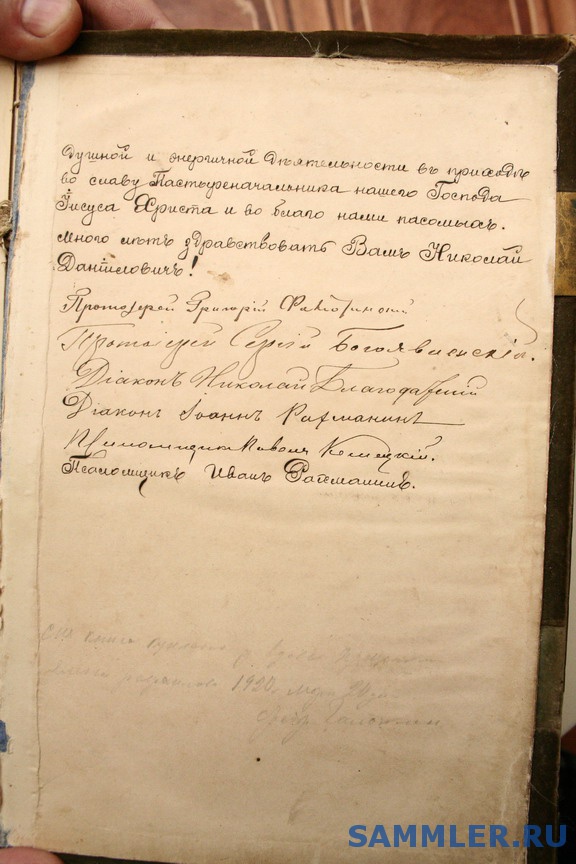 душной и энергичной дѣятельности въ приходѣ
во славу Пастыреначальника нашего Господа
Іисуса Христа и во благо нами пасомыхъ.
Много лѣтъ здравствовать Вамъ Николай
Даніиловичъ!
Протоіерей Григорій
Протоіерей Сергій Богоявленскій.
Діаконъ Николай Благодарный
Діаконъ Іоаннъ Рахманинъ
Псаломщикъ Павелъ
Псаломщикъ Иванъ Рахманинъ.
Сия книга
1920
SAMMLER.RU